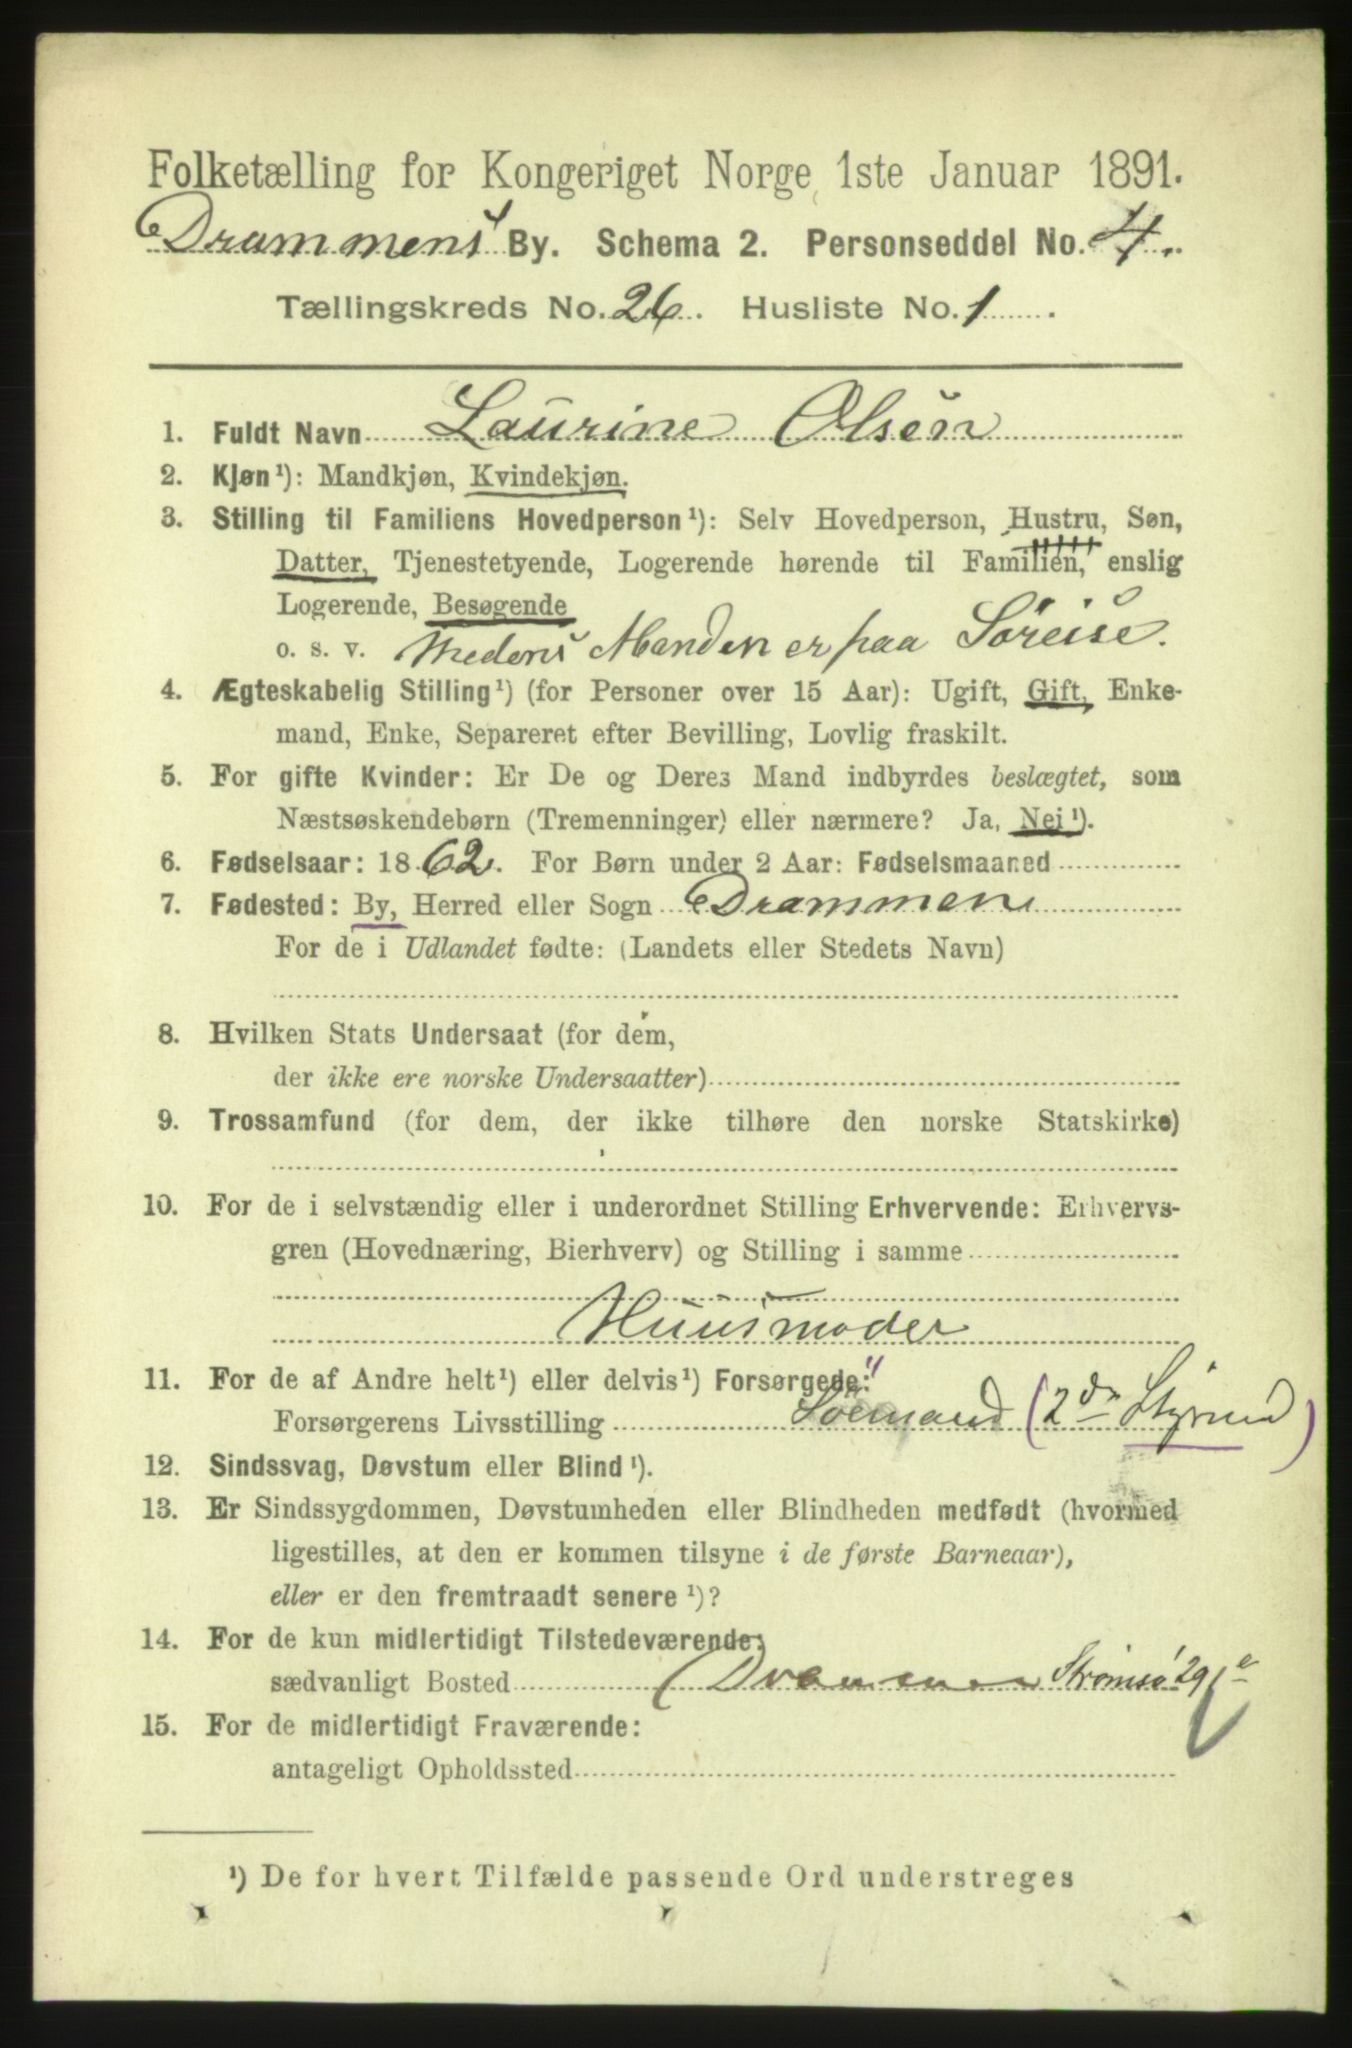 Folketælling for Kongeriget Norge 1ste Januar 1891.
Drammens By. Schema 2. Personseddel No. 4.
Tællingskreds No. 26. Husliste No. 1.
1. Fuldt Navn Laurine Olsen
2. Kjøn¹): Mandkjøn, Kvindekjøn.
3. Stilling til Familiens Hovedperson¹): Selv Hovedperson, Hustru, Søn,
Datter, Tjenestetyende, Logerende hørende til Familien, enslig
Logerende, Besøgende
o. s. v. medens Manden er paa Søreise.
4. Ægteskabelig Stilling¹) (for Personer over 15 Aar): Ugift, Gift, Enke-
mand, Enke, Separeret efter Bevilling, Lovlig fraskilt.
5. For gifte Kvinder: Er De og Deres Mand indbyrdes beslægtet, som
Næstsøskendebørn (Tremenninger) eller nærmere? Ja, Nei¹).
6. Fødselsaar: 1862. For Børn under 2 Aar: Fødselsmaaned
7. Fødested: By, Herred eller Sogn Drammen
For de i Udlandet fødte: (Landets eller Stedets Navn)
8. Hvilken Stats Undersaat (for dem,
der ikke ere norske Undersaatter)
9. Trossamfund (for dem, der ikke tilhøre den norske Statskirke)
10. For de i selvstændig eller i underordnet Stilling Erhvervende: Erhvervs-
gren (Hovednæring, Bierhverv) og Stilling i samme
Huusmoder
11. For de af Andre helt¹) eller delvis¹) Forsørgede:
Forsørgerens Livsstilling Sømand (2den Styrmd)
12. Sindssvag, Døvstum eller Blind¹).
13. Er Sindssygdommen, Døvstumheden eller Blindheden medfødt (hvormed
ligestilles, at den er kommen tilsyne i de første Barneaar),
eller er den fremtraadt senere¹)?
14. For de kun midlertidigt Tilstedeværende:
sædvanligt Bosted Drammen Strømsø 29
15. For de midlertidigt Fraværende:
antageligt Opholdssted
¹) De for hvert Tilfælde passende Ord understreges